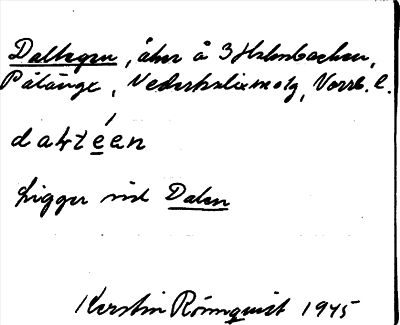 Daltegen, åker å 3 Holmbacken,
Pålänge, Nederkalix msg, Norrb. l.
daltéen
Ligger vid Dalen
Kerstin Rönnquist 1945